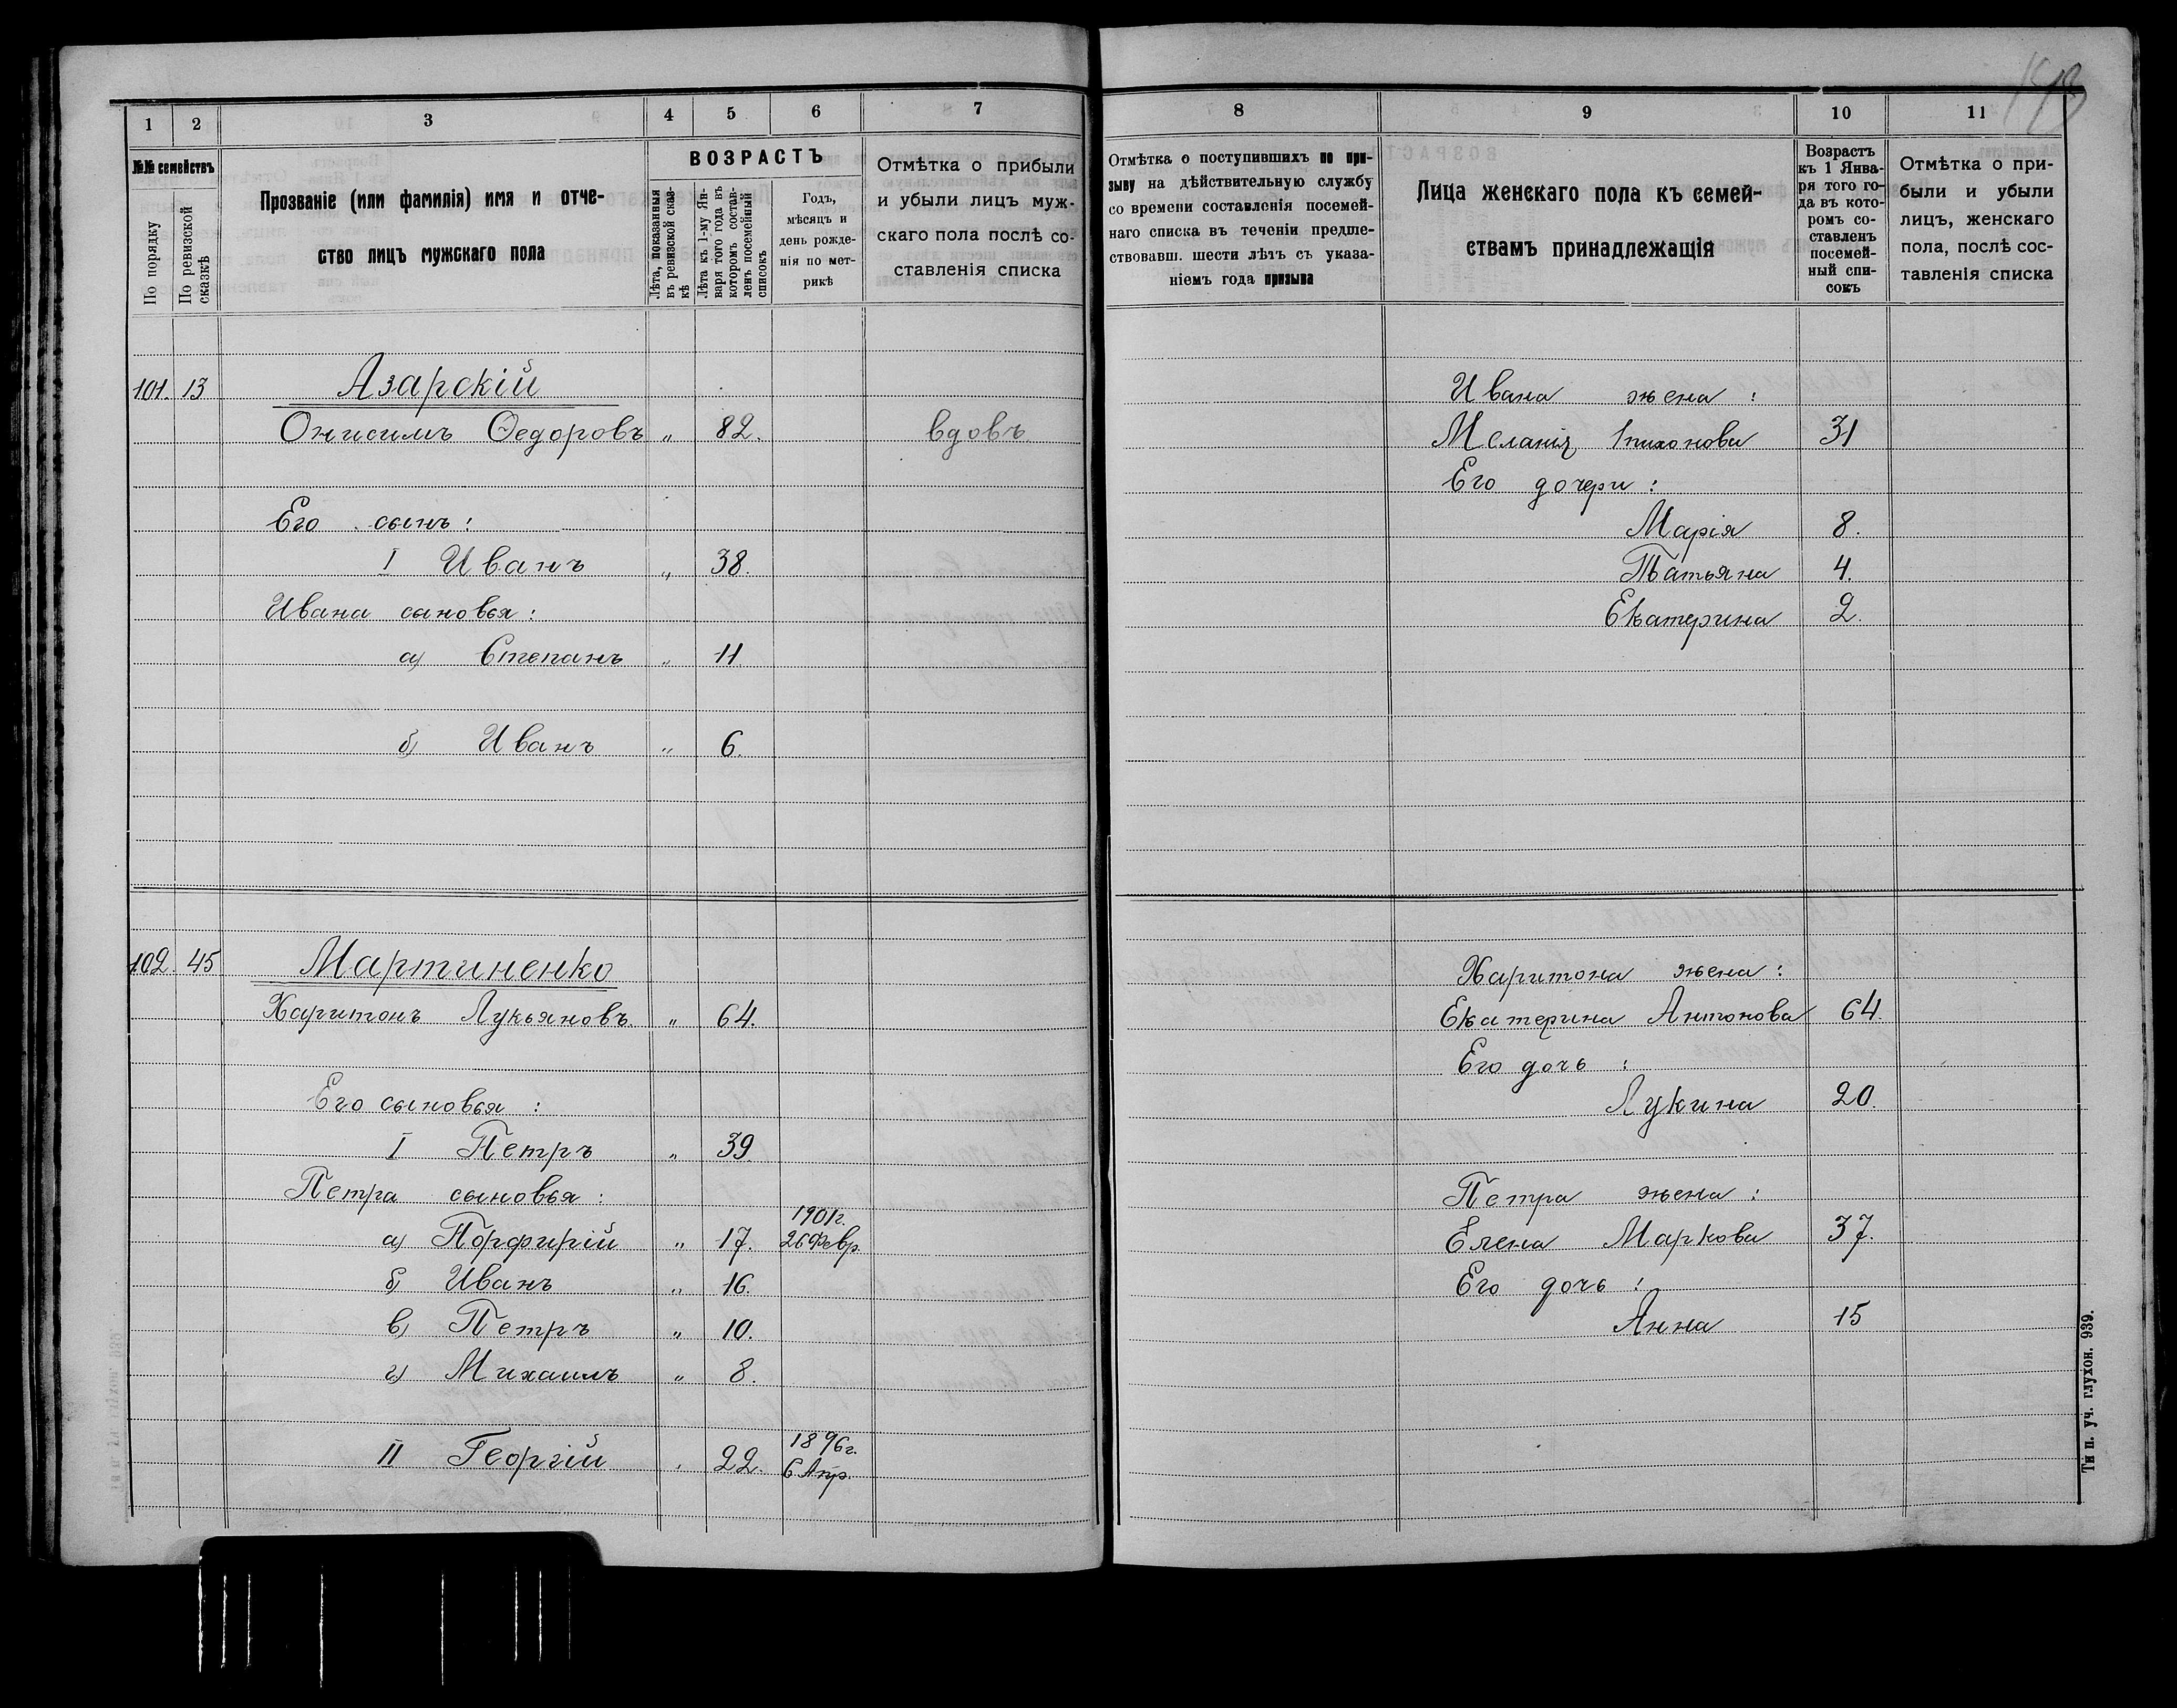 1 2 3 4 5 6 7
№№ семействъ
По порядку
По ревизской сказкѣ
Прозваніе (или фамилія) имя и отче-
ство лицъ мужскаго пола
ВОЗРАСТЪ
Лѣта, показанныя
въ ревизской сказ-
кѣ
Лѣта къ 1-му Ян-
варя того года въ
которомъ состав-
ленъ посемейный
списокъ
Годъ,
мѣсяцъ и
день рожде-
нія по мет-
рикѣ
Отмѣтка о прибыли
и убыли лицъ муж-
скаго пола послѣ со-
ставленія списка
101. 13 Азарскій
Онисимъ Ѳедоровъ „ 82. вдовъ
Его сынъ:
I Иванъ „ 38.
Ивана сыновья:
а) Степанъ „ 11.
б) Иванъ „ 6.
102. 45 Мартиненко
Харитонъ Лукьяновъ „ 64.
Его сыновья:
I Петръ „ 39.
Петра сыновья:
1901г.
а) Порфирій „ 17. 26 Февр.
б) Иванъ „ 16.
в) Петръ „ 10.
г) Михаилъ „ 8.
1896г.
II Георгій „ 22. 6 Апр.
8 9 10 11
Отмѣтка о поступившихъ по при-
зыву на дѣйствительную службу
со времени составленія посемей-
наго списка въ теченіи предше-
ствовавш. шести лѣтъ съ указа-
ніемъ года призыва
Лица женскаго пола къ семей-
ствамъ принадлежащія
Возрастъ
къ 1 Янва-
ря того го-
да въ кото-
ромъ со-
ставленъ
посемей-
ный спи-
сокъ
Отмѣтка о при-
были и убыли
лицъ, женскаго
пола, послѣ сос-
тавленія списка
Ивана жена:
Меланія Тихонова 31
Его дочери:
Марія 8.
Татьяна 4.
Екатерина 2.
Харитона жена:
Екатерина Антонова 64.
Его дочь:
Лукина 20.
Петра жена:
Елена Маркова 37.
Его дочь:
Анна 15
Тип. уч. глухон. 939.